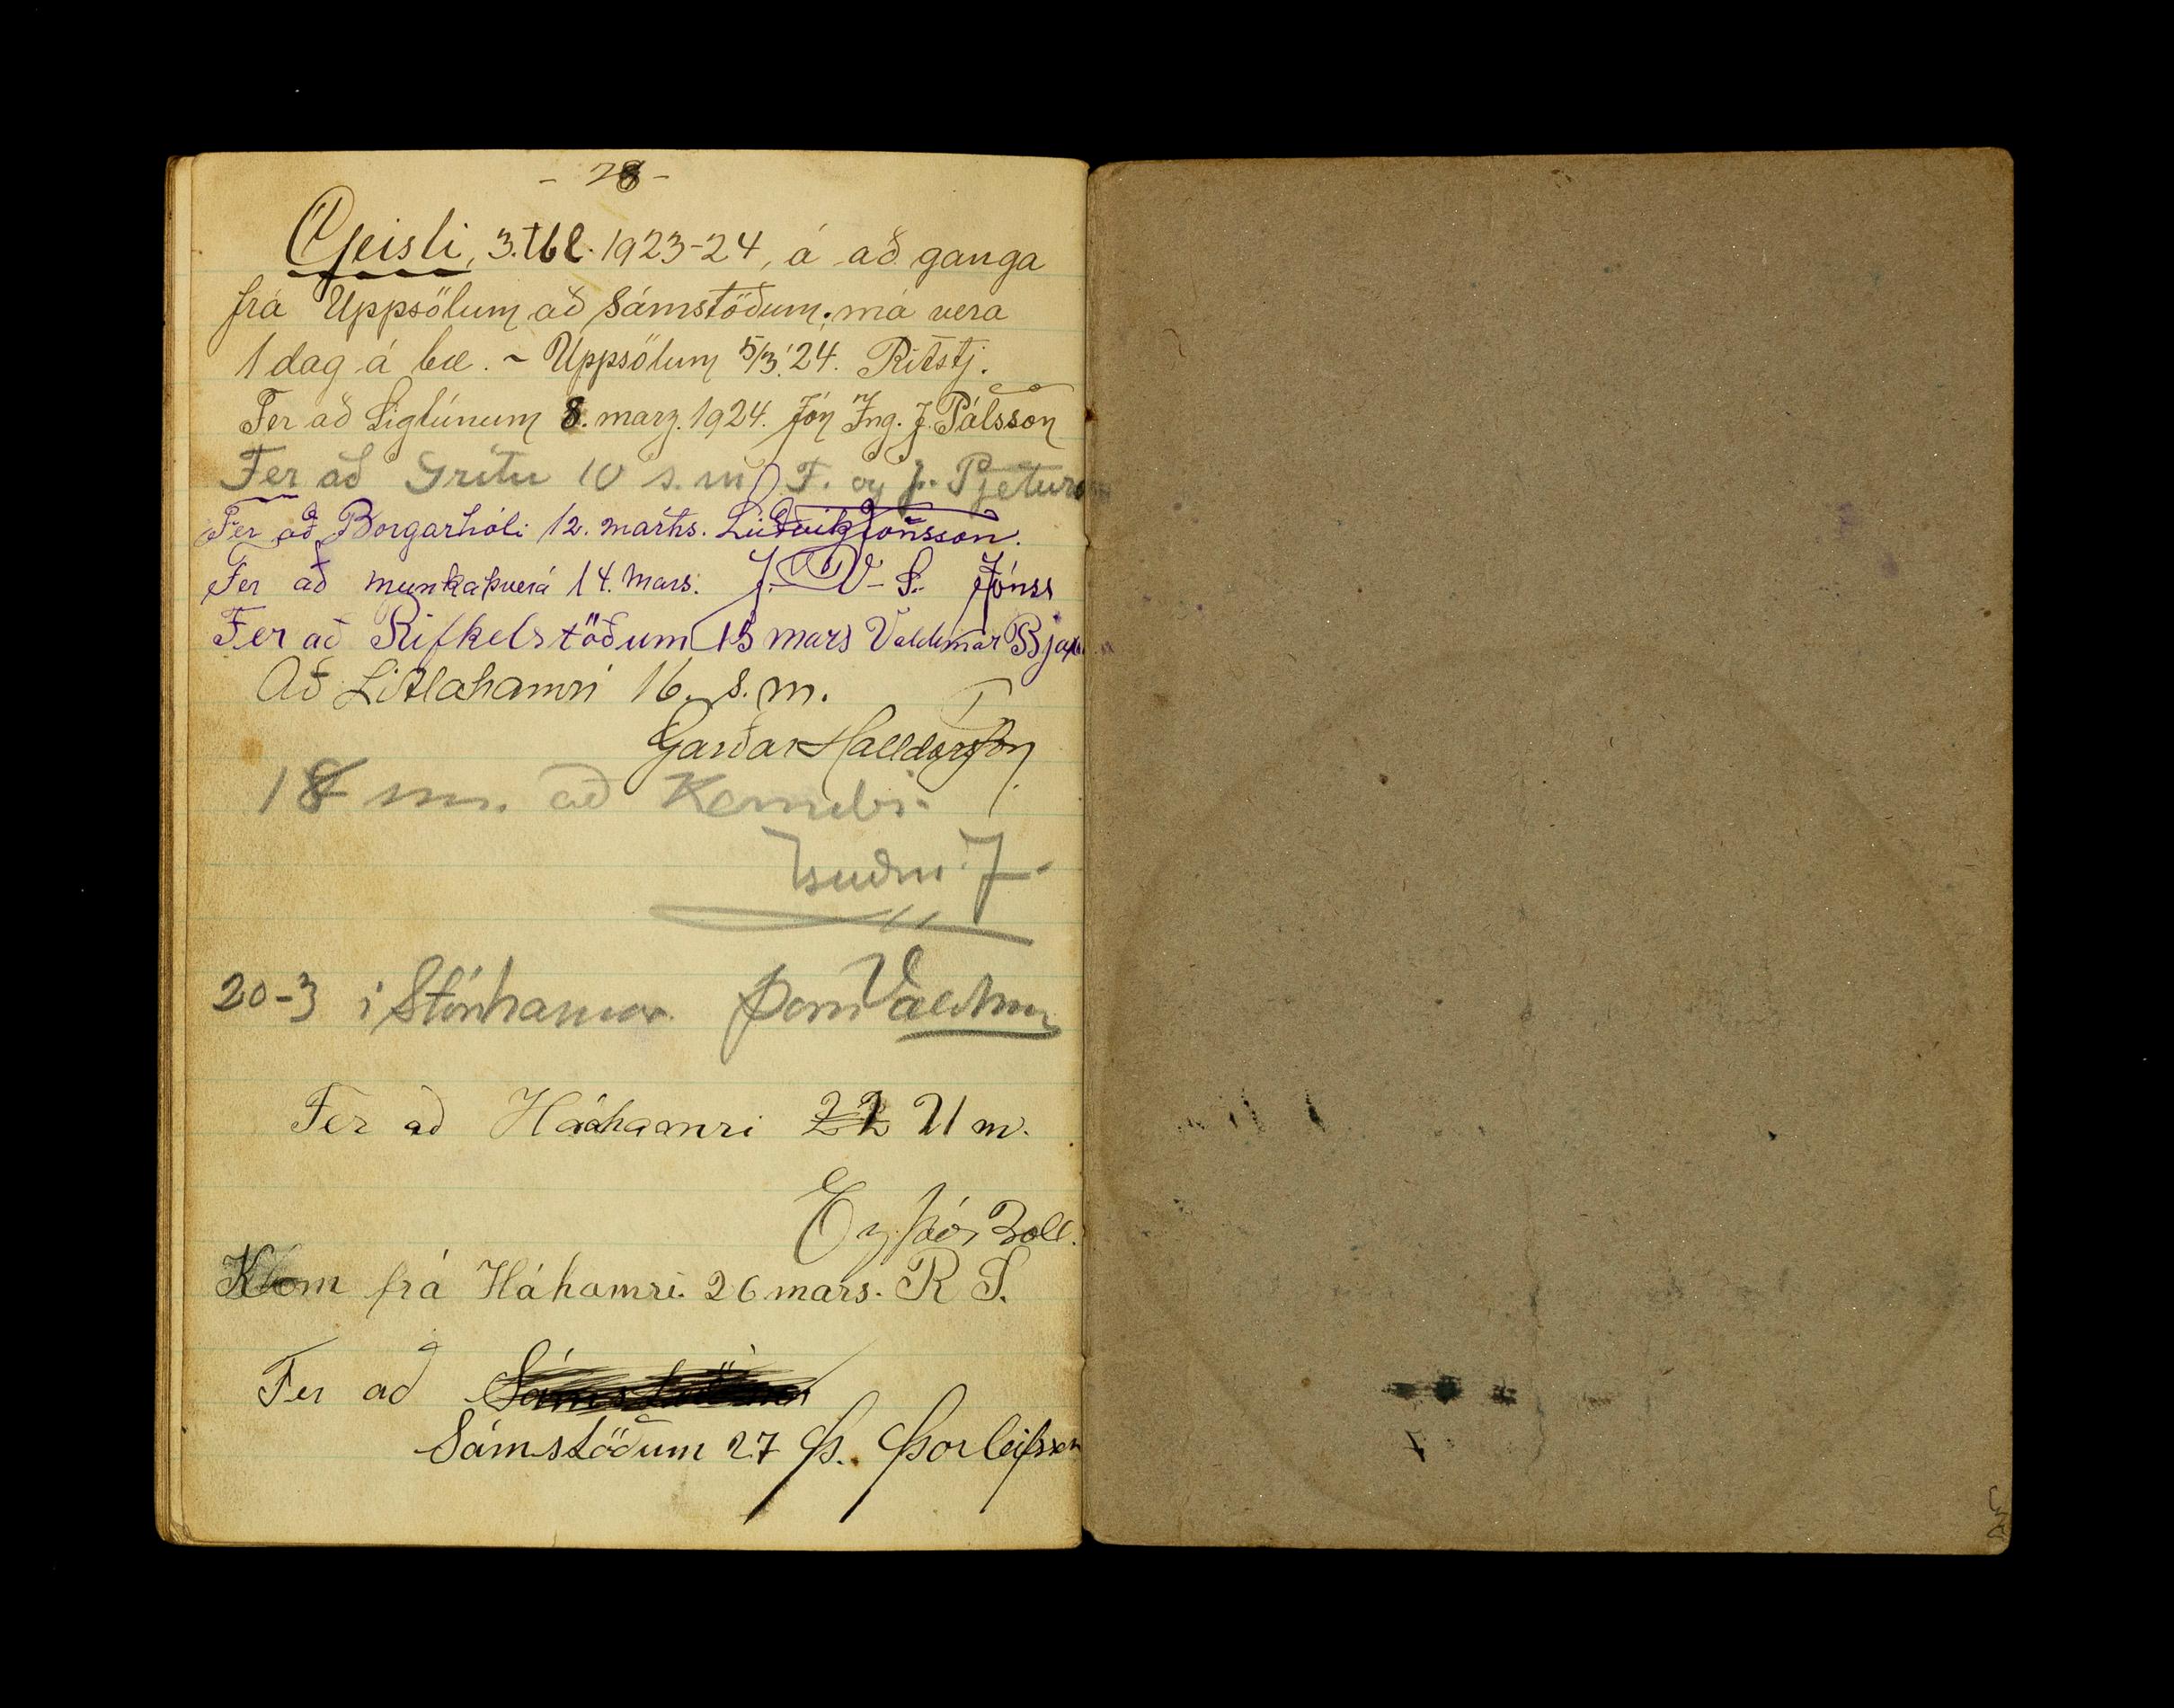 - 28 -
Geisli, 3. tbl. 1923-24, á að ganga
frá Uppsölum að Sámstöðum; má vera
1 dag á bæ. ~ Uppsölum 5/3 '24. Ritstj.
Fer að Sigtúnum 8. marz. 1924. Jón Ing. J. Pálsson
Fer að Grítu 10 s.m. F. og J. Pjeturs
Fer að Borgarhóli 12. marhs. Lúðvík Jónsson.
Fer að munkaþverá 14. mars. J. V- S. Jónss
Fer að Rifkelstöðum 15 mars Valdimar Bja
Að Litlahamri 16. s.m.
Garðar Halldórsson
18 m. að
J.
20-3 í Stórhamar
Fer að Háahamri 21 m.
Kom frá Háhamri. 26 mars. R S.
Fer að Sámstöðum
Sámstöðum 27 Þ. Þorleifsson